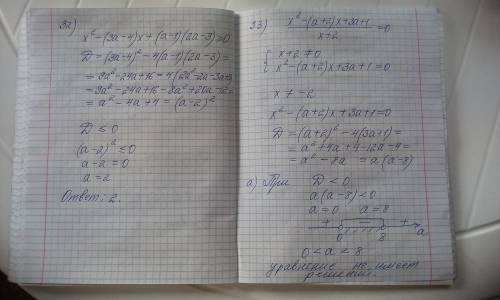 32)
x² - (3a-4)x + (a-1)(2a-3) = 0
D = (3a-4)² - 4(a-1)(2a-3) =
= 9a² - 24a + 16 - 4(2a² - 2a - 3a + 3)
= 9a² - 24a + 16 - 8a² + 20a - 12 =
= a² - 4a + 4 = (a-2)²
D ≤ 0
(a-2)² ≤ 0
a - 2 = 0
a = 2
Ответ: 2.
33) x² - (a+2)x + 3a+1
x+2 = 0
{ x+2 ≠ 0
x² - (a+2)x + 3a+1 = 0
x ≠ -2
x² - (a+2)x + 3a+1 = 0
D = (a+2)² - 4(3a+1) =
= a² + 4a + 4 - 12a - 4 =
= a² - 8a = a(a-8)
а) При D < 0
a(a-8) < 0
a = 0 a = 8
+ - +
0 8 a
0 < a < 8
уравнение не имеет
решений.